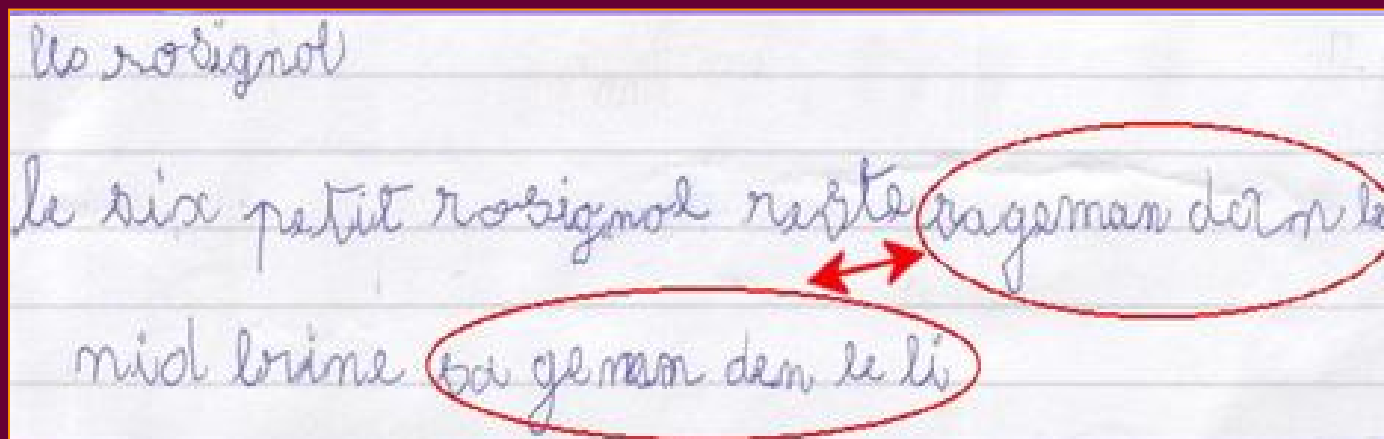 les rosignol
le six petit rosignol reste sageman dan le
nid brine sa geman den le li